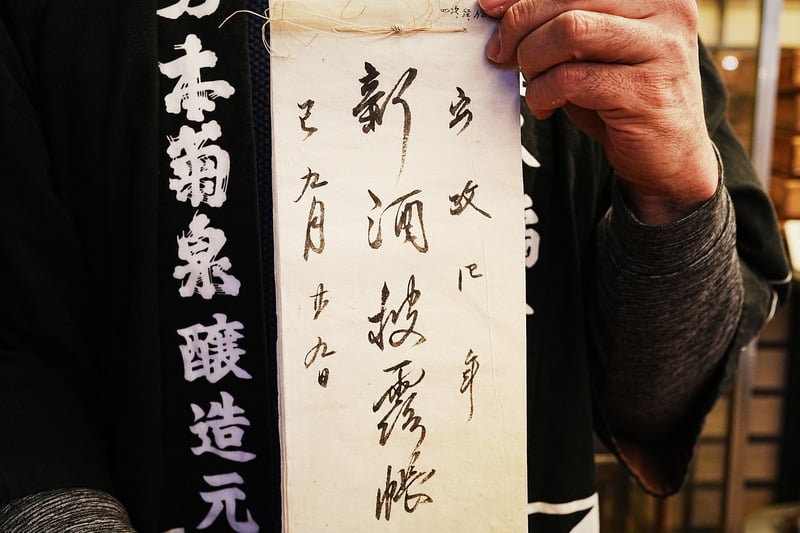 安政巳年
新酒披露帳
巳九月廿九日
本菊泉醸造元